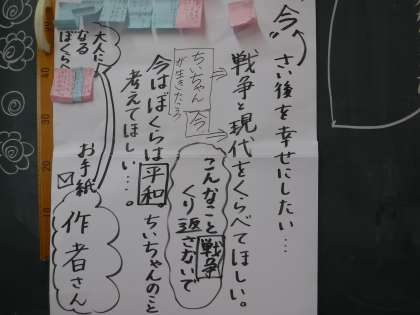 "今"
さい後を幸せにしたい…
戦争と現代をくらべてほしい。
ちいちゃん
が生きたころ
今
こんなこと戦争
くり返さないで
今はぼくらは平和
ちいちゃんのこと
考えてほしい…。
大人に
なる
ぼくらへ
お手紙
作者さん
40
30
20
10